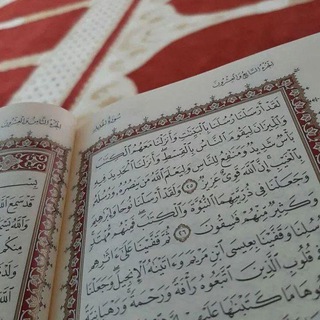 الجزء السابع والعشرون
سورة الحديد
لَقَدْ أَرْسَلْنَا رُسُلَنَا بِالْبَيِّنَٰتِ وَأَنزَلْنَا مَعَهُمُ الْكِتَٰبَ
وَالْمِيزَانَ لِيَقُومَ النَّاسُ بِالْقِسْطِ وَأَنزَلْنَا الْحَدِيدَ فِيهِ
بَأْسٌ شَدِيدٌ وَمَنَٰفِعُ لِلنَّاسِ وَلِيَعْلَمَ اللَّهُ مَن يَنصُرُهُۥ وَرُسُلَهُۥ
بِالْغَيْبِ إِنَّ اللَّهَ قَوِيٌّ عَزِيزٌ ٢٥ وَلَقَدْ أَرْسَلْنَا نُوحًا وَإِبْرَٰهِيمَ
وَجَعَلْنَا فِي ذُرِّيَّتِهِمَا النُّبُوَّةَ وَالْكِتَٰبَ فَمِنْهُم مُّهْتَدٍ
وَكَثِيرٌ مِّنْهُمْ فَٰسِقُونَ ٢٦ ثُمَّ قَفَّيْنَا عَلَىٰ ءَاثَٰرِهِم
بِرُسُلِنَا وَقَفَّيْنَا بِعِيسَى ابْنِ مَرْيَمَ وَءَاتَيْنَٰهُ الْإِنجِيلَ وَجَعَلْنَا
فِي قُلُوبِ الَّذِينَ اتَّبَعُوهُ رَأْفَةً وَرَحْمَةً وَرَهْبَانِيَّةً
ابْتَدَعُوهَا مَا كَتَبْنَٰهَا عَلَيْهِمْ
الجزء الثامن والعشرون
قَدْ سَمِعَ